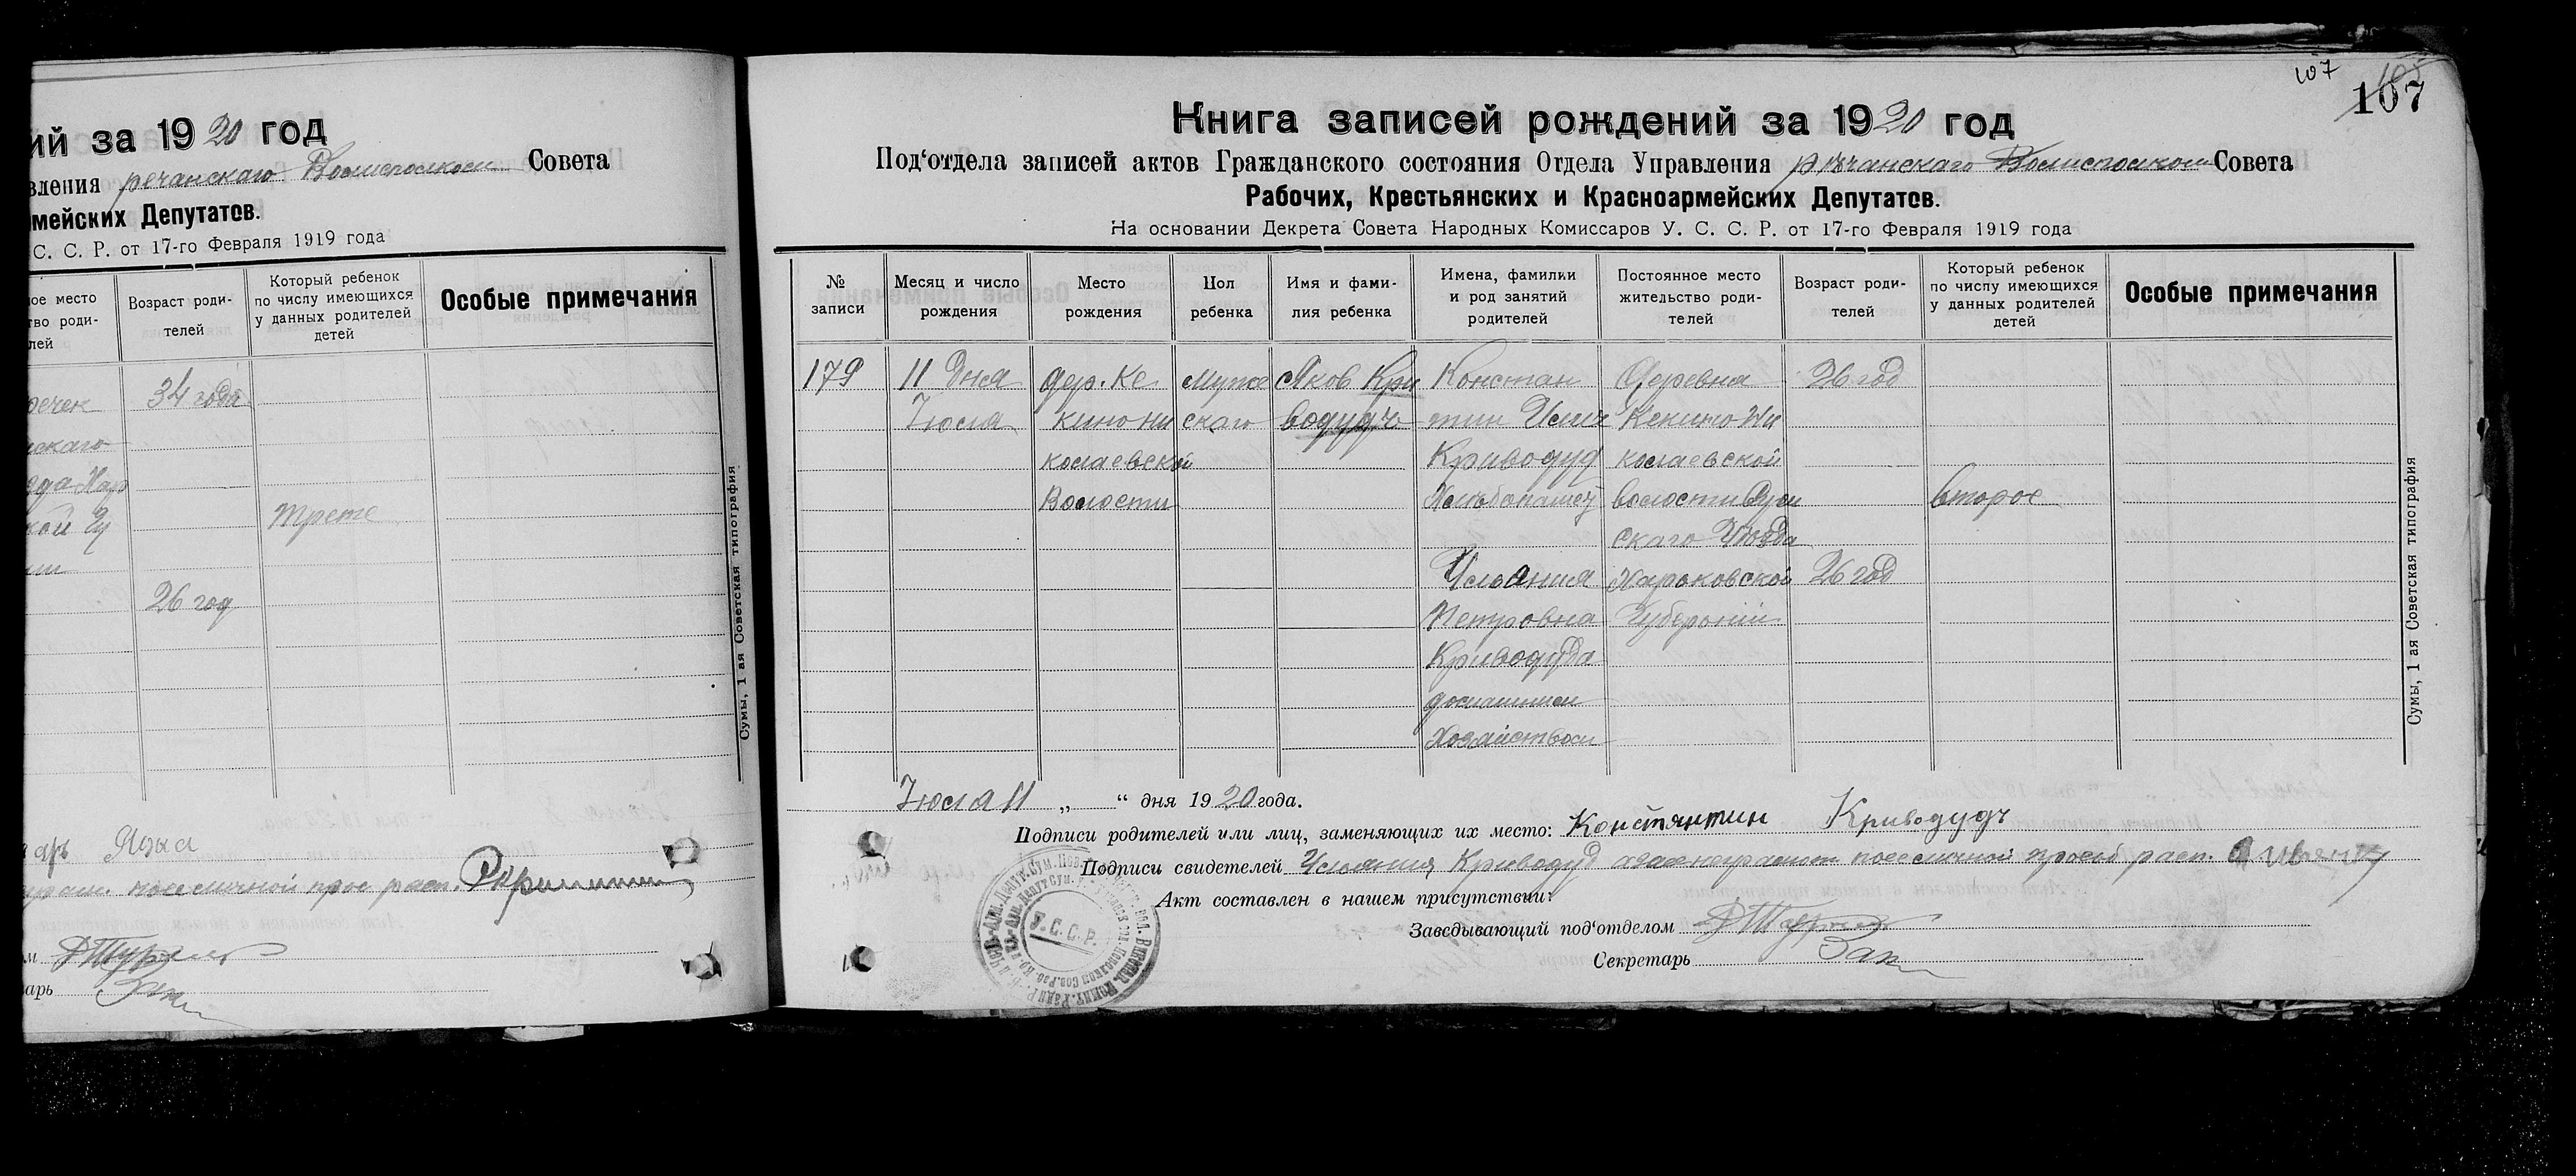 ий за 1920 год
вления речанскаго Волисполком Совета
мейских Депутатов.
С. С. Р. от 17-го Февраля 1919 года
ое место
тво роди-
лей
Возраст роди-
телей
Который ребенок
по числу имеющихся
у данных родителей
детей
Особые примечания
34 года
скаго
трете
26 год
Сумы, 1-ая Советская типография
107
107
Книга записей рождений за 1920 год
Под‘отдела записей актов Гражданского состояния Отдела Управления речанскаго Волисполком Совета
Рабочих, Крестьянских и Красноармейских Депутатов.
На основании Декрета Совета Народных Комиссаров У. С. С. Р. от 17-го Февраля 1919 года
№
записи
Месяц и число
рождения
Место
рождения
Пол
ребенка
Имя и фами-
лия ребенка
Имена, фамилии
и род занятий
родителей
Постоянное место
жительство роди-
телей
Возраст роди-
телей
Который ребенок
по числу имеющихся
у данных родителей
детей
Особые примечания
179
11 дня
Июля
дер. Ке
кино ни
колаевской
Волости
мужс
скаго
Яков Кри
водудъ
Констан
тин Илич
Криводуд
Хлебопашец
Ульяния
Петровна
Криводуда
домашнем
Хозяйством
Деревня
Кекино Ни
колаевской
волости Сум
скаго Уезда
Харьковской
Губернии
26 год
26 год
второе
Сумы, 1 ая Советская типография
Июля 11 „ “ дня 1920 года.
Подписи родителей или лиц, заменяющих их место: Констянтин Криводудъ
Подписи свидетелей Ульяния Криводуд а за неграмот. по ее личной прозб расп.
Акт составлен в нашем присутствии:
Заведывающий под‘отделом
Секретарь
У.С.С.Р.